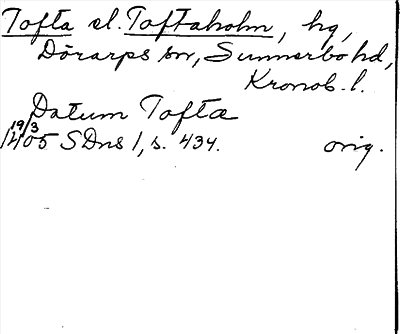 Tofta el. Toftaholm, hg,
Dörarps sn, Sunnerbo hd,
Kronob. l.
Datum Tofta
19/3
1405 SDns 1, s. 434. orig.